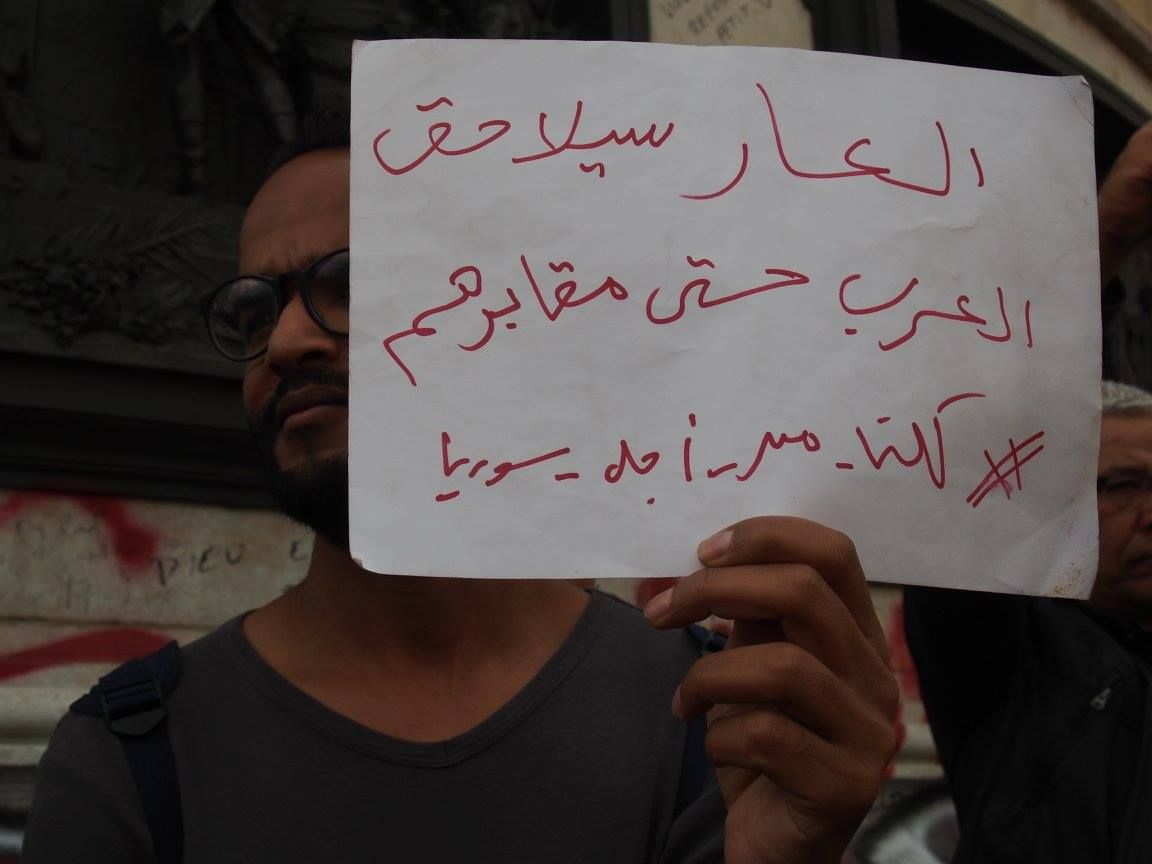 العار سيلاحق
العرب حتى مقابرهم
#كلنا_من_أجل_سوريا
DIEU